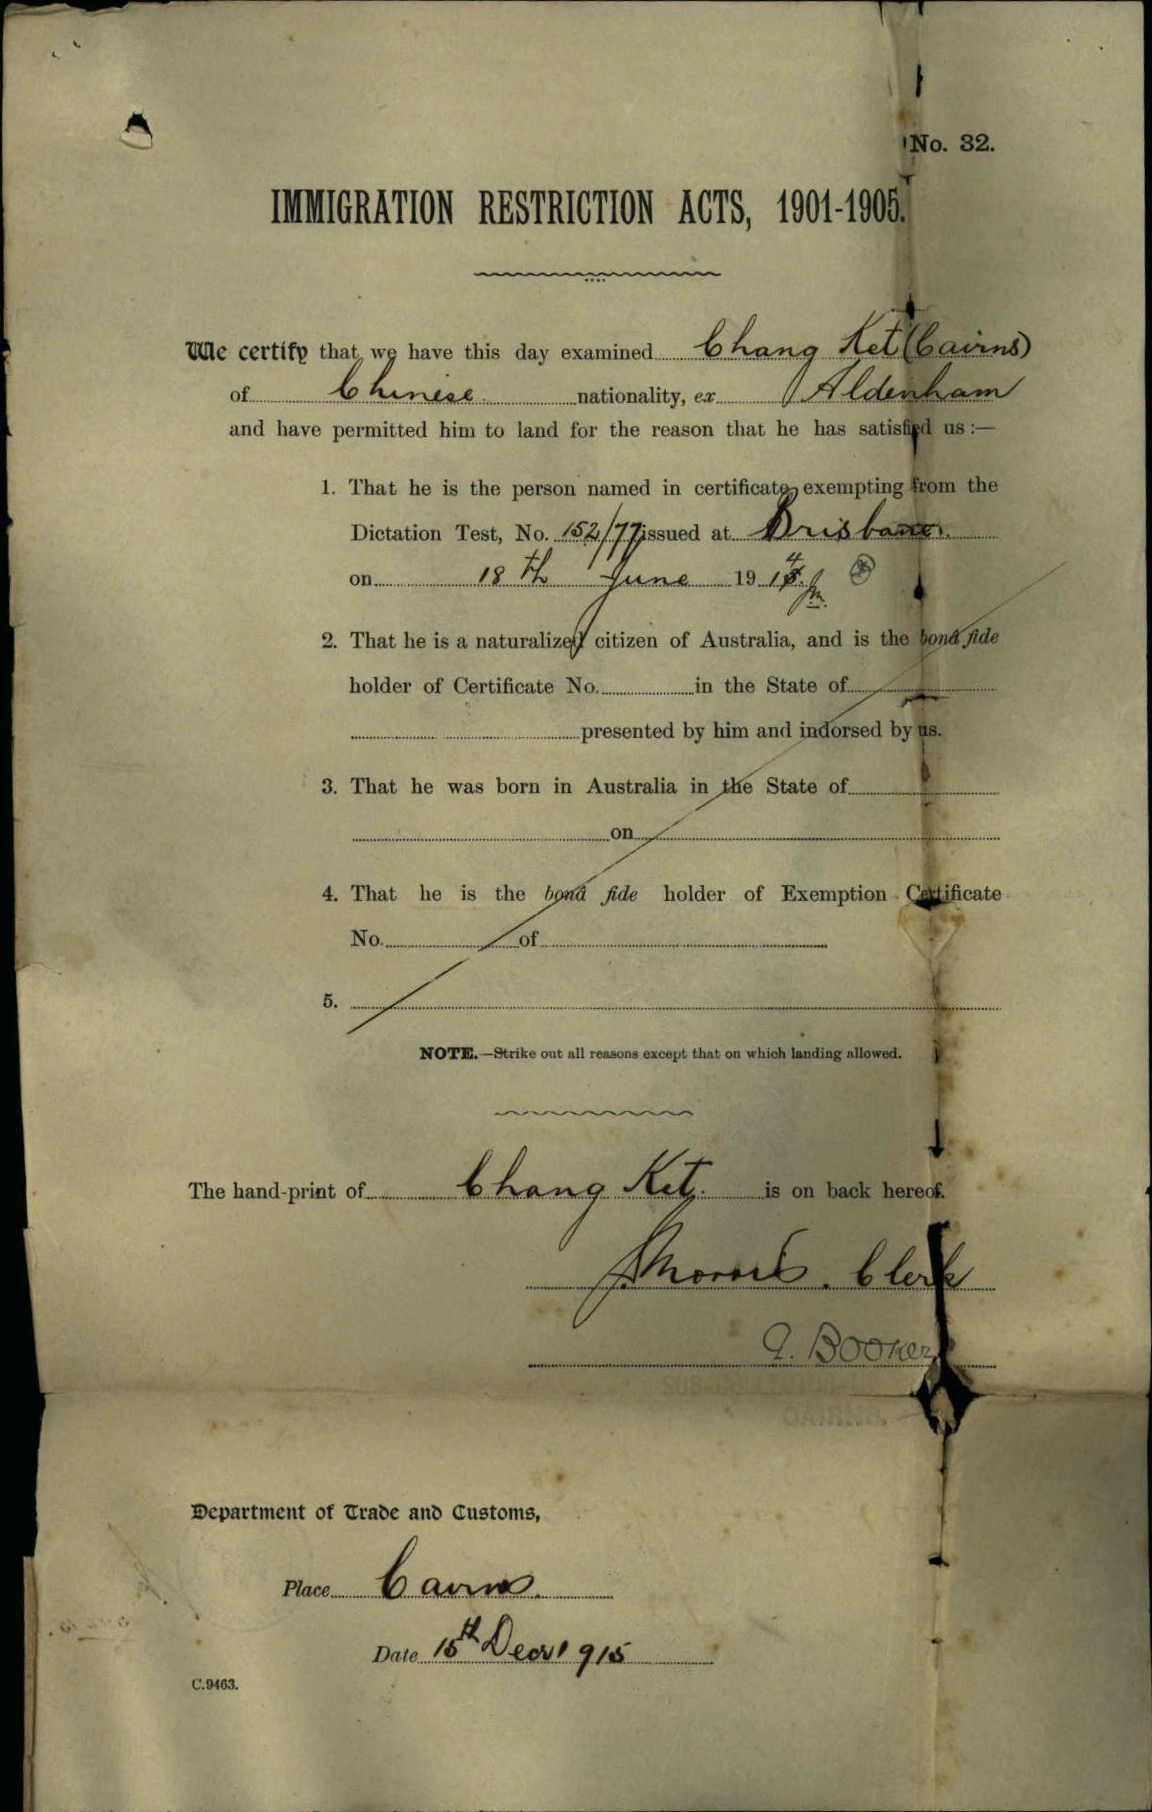 No. 32.
IMMIGRATION RESTRICTION ACTS, 1901-1905.
We certify that we have this day examined Chang Ket (Cairns)
of Chinese nationality, ex Aldenham
and have permitted him to land for the reason that he has satisfied us :—
1. That he is the person named in certificate exempting from the
Dictation Test, No. 152/77 issued at Brisbane.
on 18th June 1914
2. That he is a naturalized citizen of Australia, and is the bonâ fide
holder of Certificate No. in the State of
presented by him and indorsed by us.
3. That he was born in Australia in the State of
on
4. That he is the bonâ fide holder of Exemption Certificate
No. of
5.
NOTE.—Strike out all reasons except that on which landing allowed.
The hand-print of Chang Ket. is on back hereof.
Morris. Clerk
Booker
Department of Trade and Customs,
Place Cairns.
Date 15th Decr 1915
C.9463.